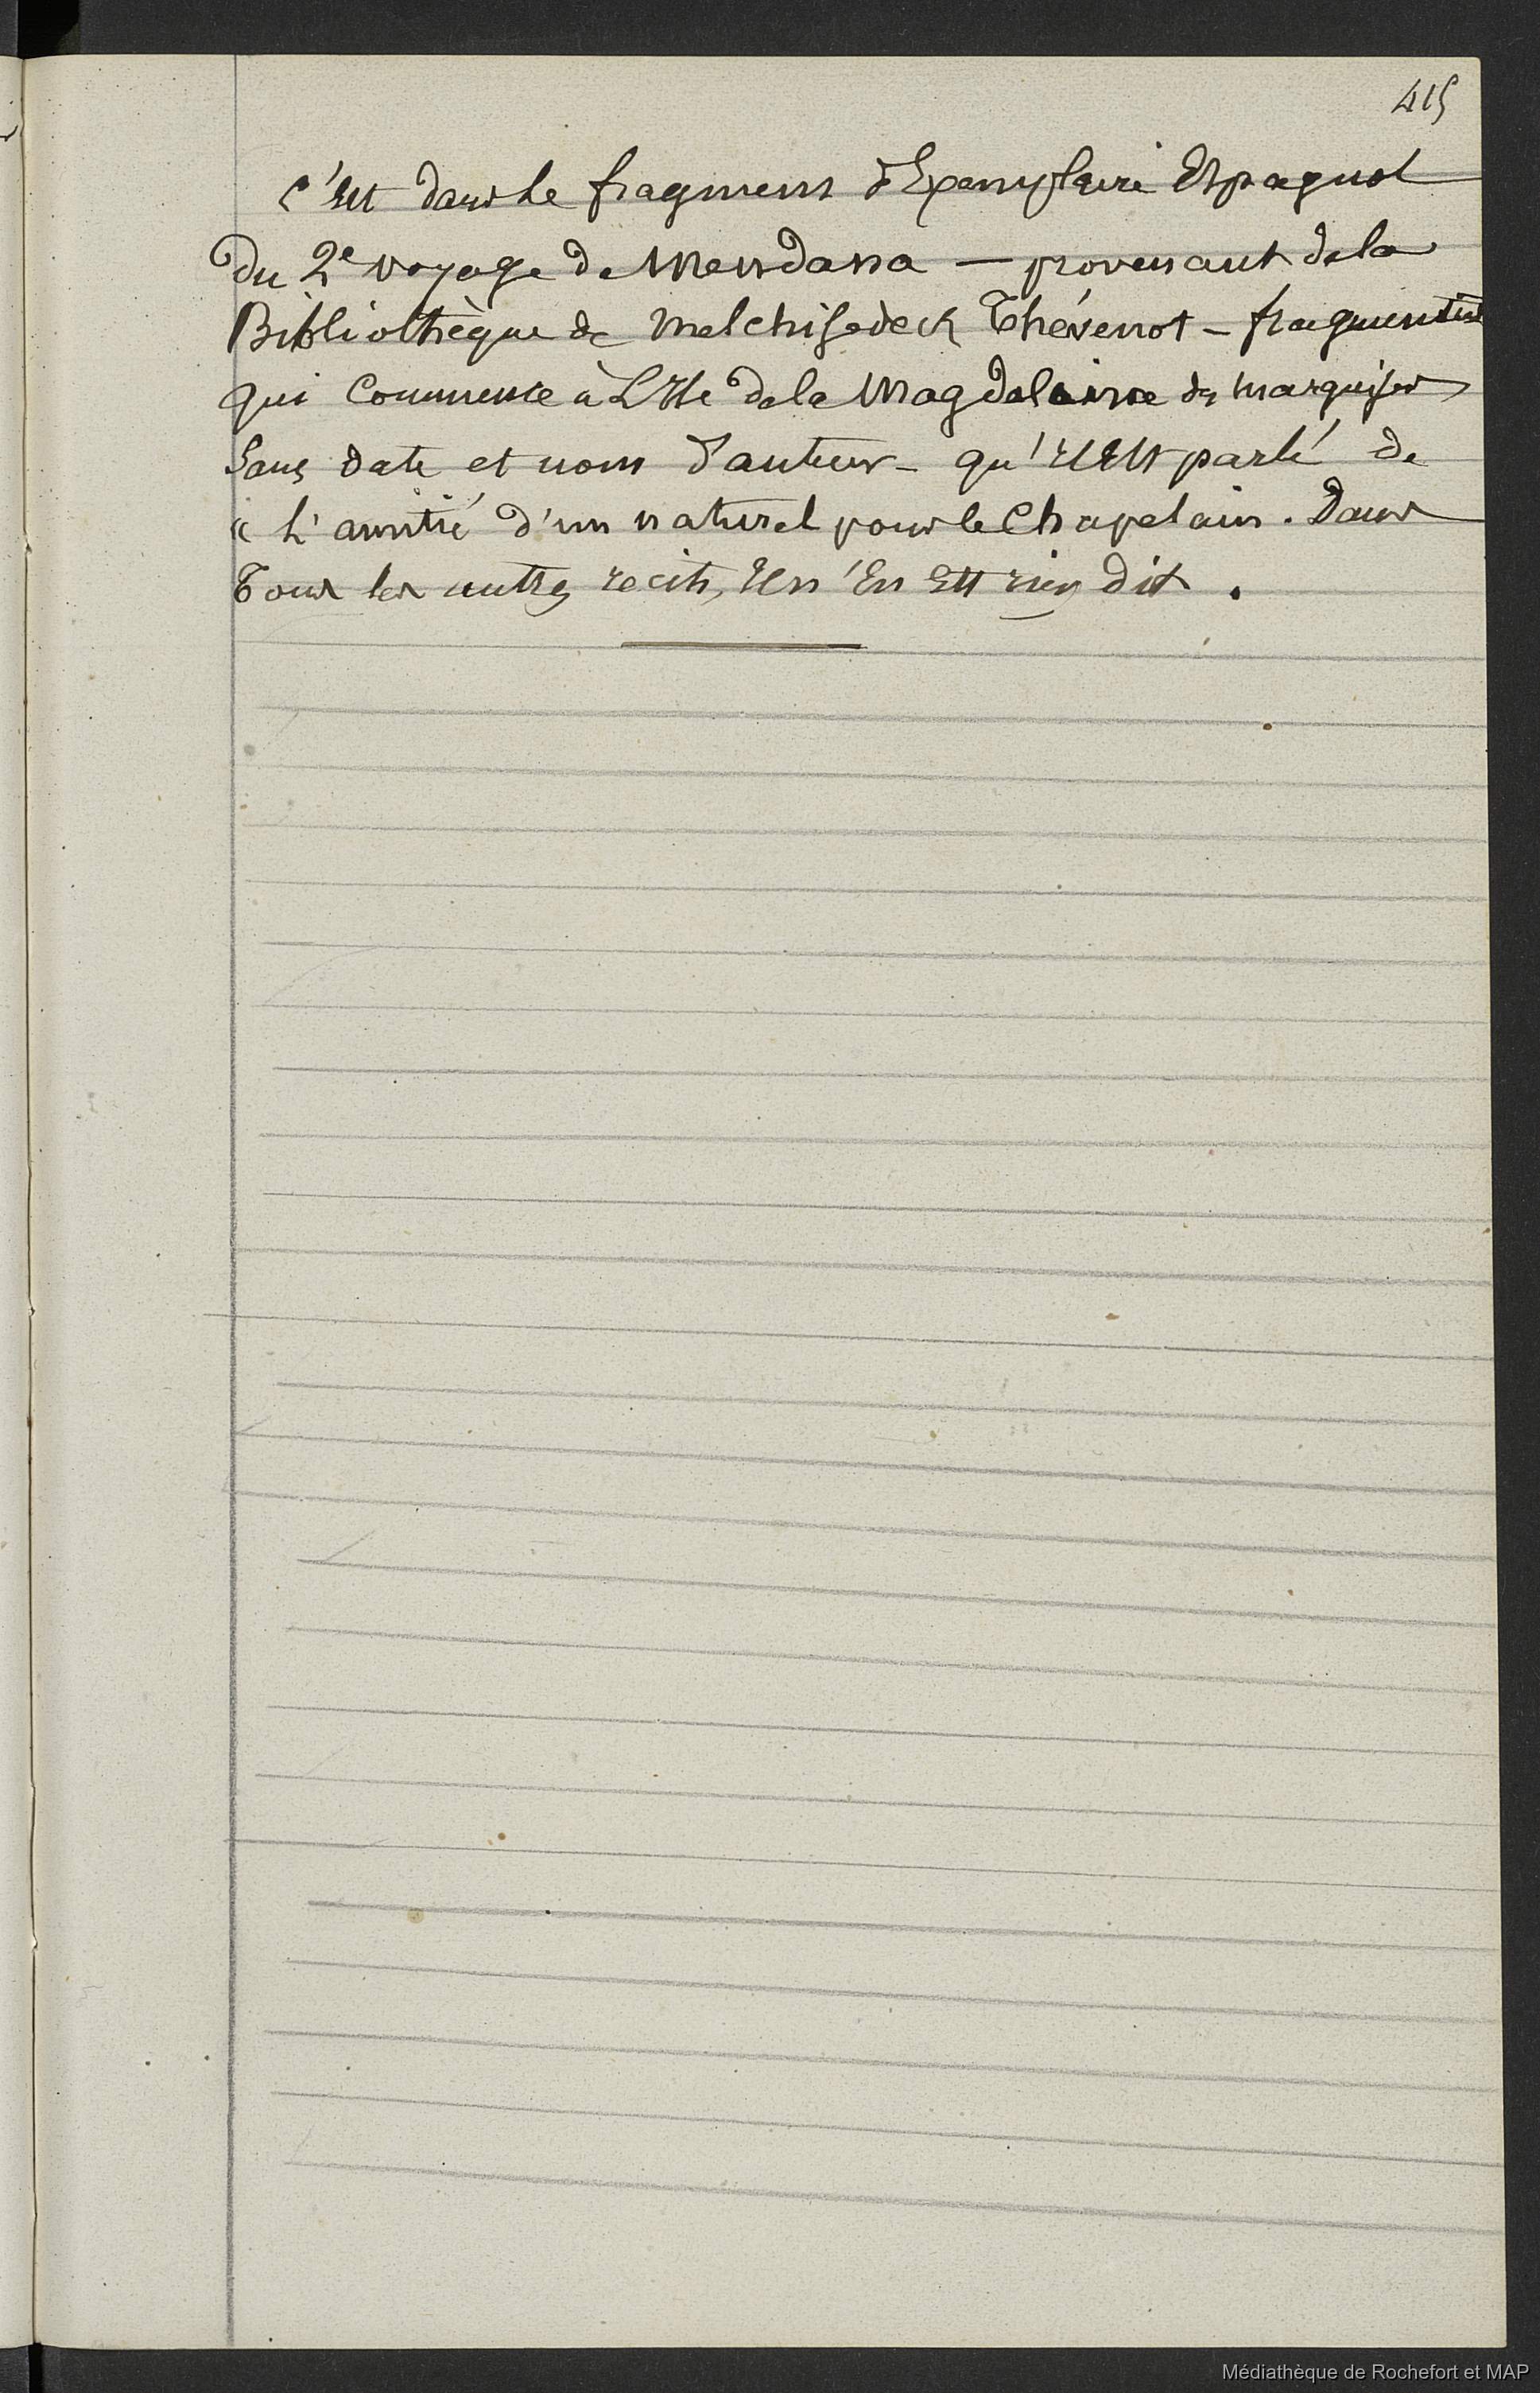 415
C'est dans le fragment d'Exemplaire Espagnol
du 2e voyage de Mendana — provenant de la
Bibliothèque de Melchisedeck Thévenot — fragment
qui Commence à L'Ile de la Magdelaine des Marquises
Sans date et nom d'auteur — qu'il Est parlé de
« L'amitié d'un naturel pour le Chapelain. Dans
Tous les autres recits, Il n'En Est rien dit.
Médiathèque de Rochefort et MAP